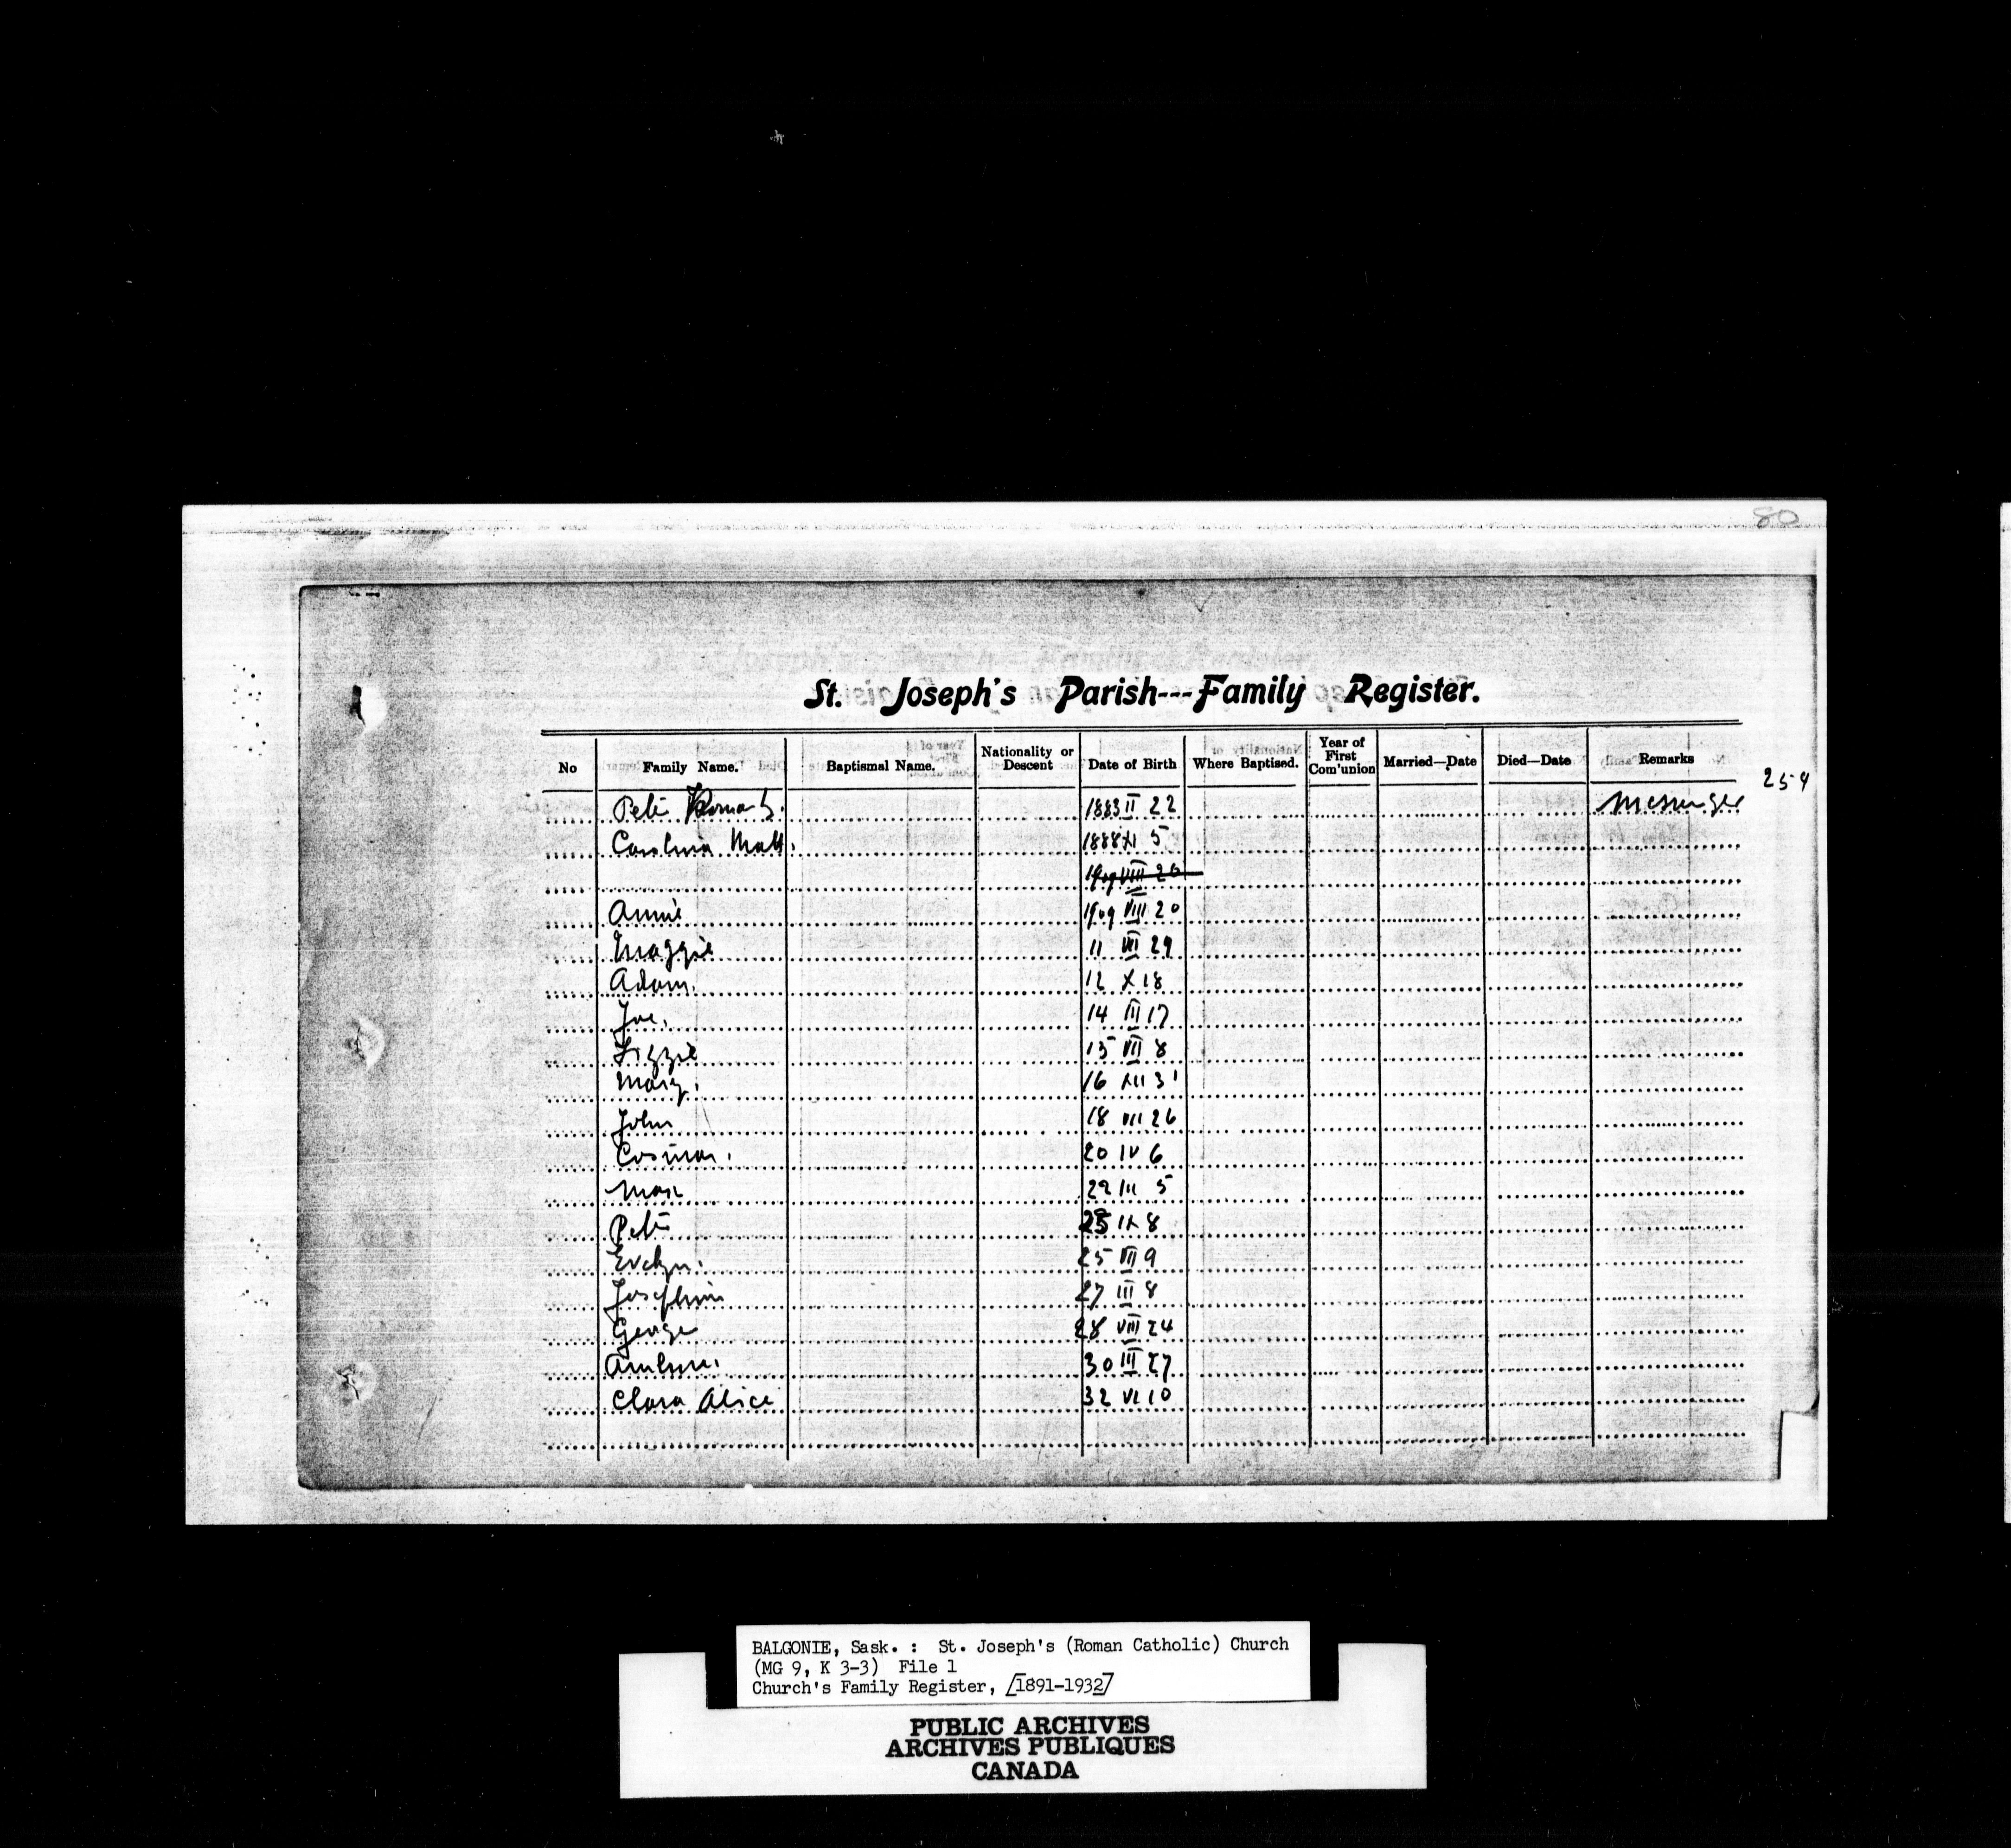 80
St. Joseph's Parish---Family Register.
No Family Name. Baptismal Name. Nationality or Descent Date of Birth Where Baptised. Year of First Com'union Married—Date Died—Date Remarks
25-4
Peter 1883 II 22 Messenger
Carolina Matt. 1888 XI 5
1909 VIII 20
Annie 1909 VIII 20
Maggie 11 VII 29
Adam. 12 X 18
Joe. 14 III 17
Lizzie 15 VII 8
Mary. 16 XII 31
John 18 VII 26
20 IV 6
Max 22 III 5
Peter IX 8
Evelyn. 25 VII 9
Josephine 27 III 8
George 28 VIII 24
30 III 27
Clara Alice 32 VI 10
BALGONIE, Sask. : St. Joseph's (Roman Catholic) Church
(MG 9, K 3-3) File 1
Church's Family Register, [1891-1932]
PUBLIC ARCHIVES
ARCHIVES PUBLIQUES
CANADA